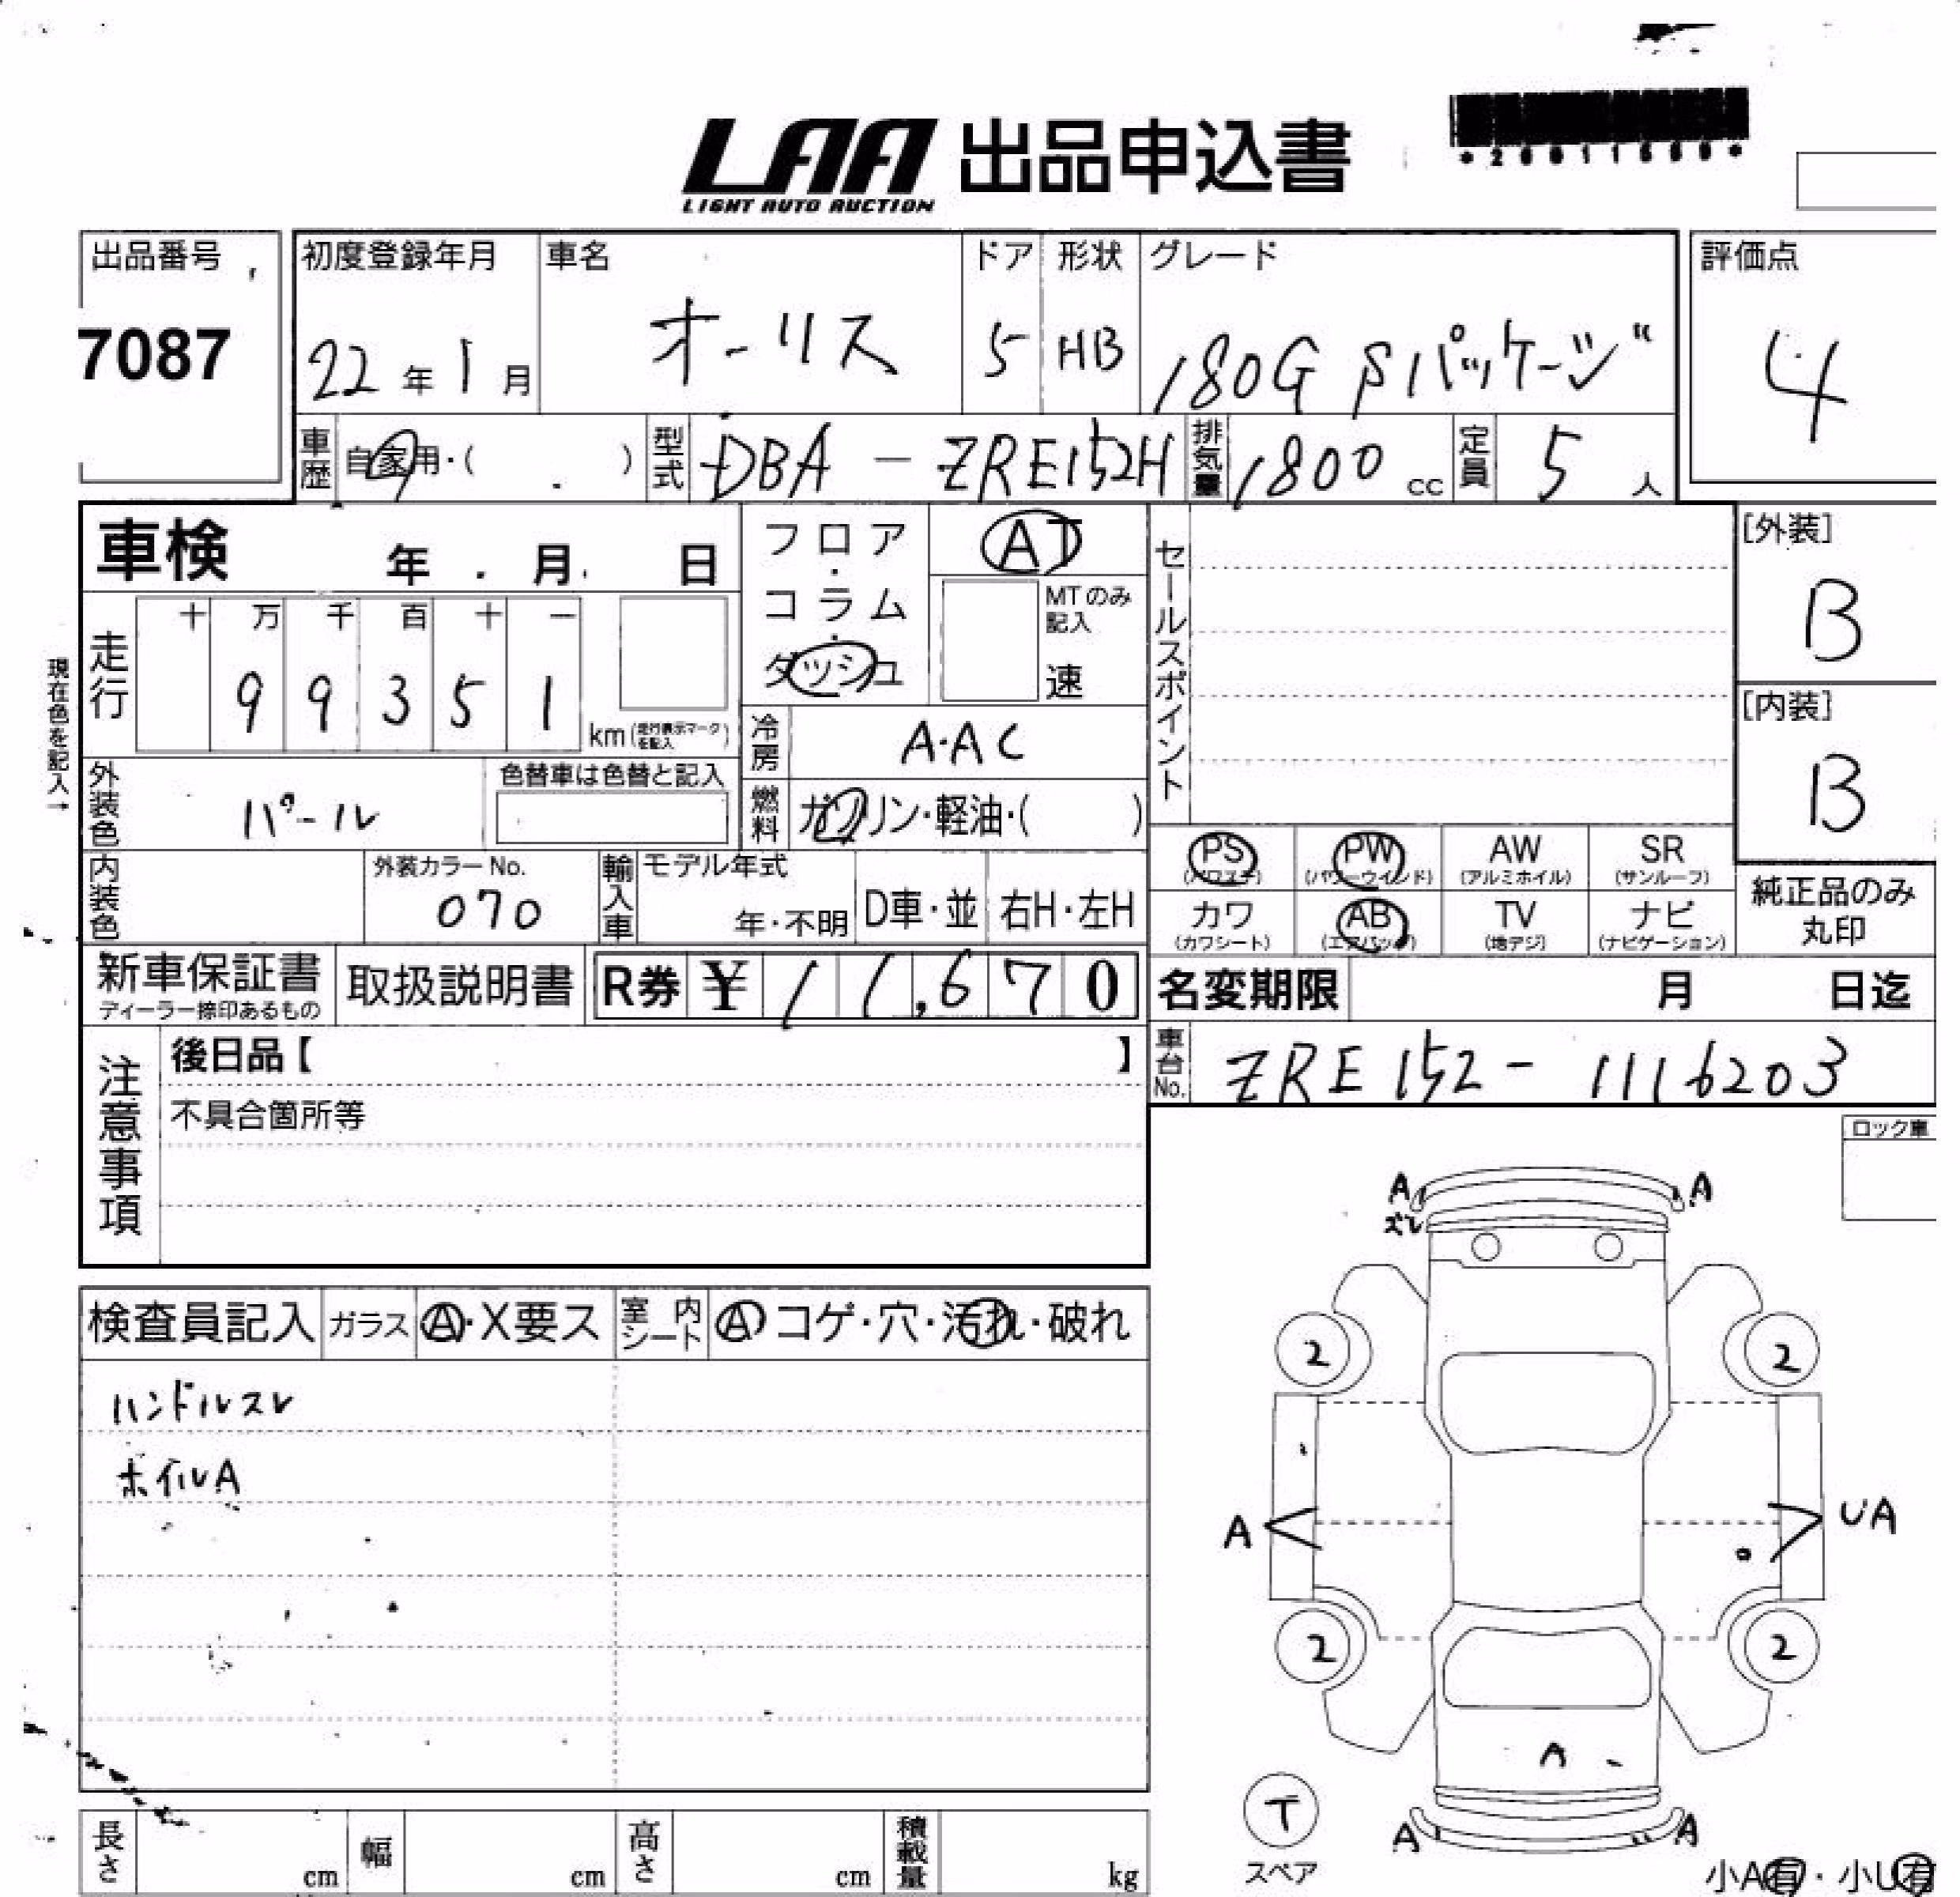 LAA 出品申込書
LIGHT AUTO AUCTION
出品番号
7087
初度登録年月
22年1月
車名
オーリス
ドア
5
形状
HB
グレード
180G Sパッケージ"
評価点
4
車歴 自家用・( )
型式 DBA-ZRE152H
排気量 1800cc
定員 5人
車検 年 月 日
フロア・コラム・ダッシュ
AT
MTのみ記入
速
セールスポイント
[外装]
B
[内装]
B
現在色を記入→
走行
十 万 千 百 十 一
9 9 3 5 1
km(走行表示マークを記入)
冷房 A・AC
外装色 パール
色替車は色替と記入
燃料 ガソリン・軽油・( )
内装色
外装カラーNo.
070
輸入車
モデル年式
年・不明
D車・並
右H・左H
PS (パワステ)
PW (パワーウインド)
AW (アルミホイル)
SR (サンルーフ)
カワ (カワシート)
AB (エアバッグ)
TV (地デジ)
ナビ (ナビゲーション)
純正品のみ
丸印
新車保証書
ディーラー捺印あるもの
取扱説明書
R券 ¥11,670
名変期限 月 日迄
車台No. ZRE152-1116203
注意事項
後日品【 】
不具合箇所等
ロック車
検査員記入
ガラス A・X要ス
室内シート A コゲ・穴・汚れ・破れ
ハンドルスレ
ホイルA
A A
ズレ
2 2
A UA
2 2
A
T
スペア
A A
小A有・小U有
長さ cm
幅 cm
高さ cm
積載量 kg